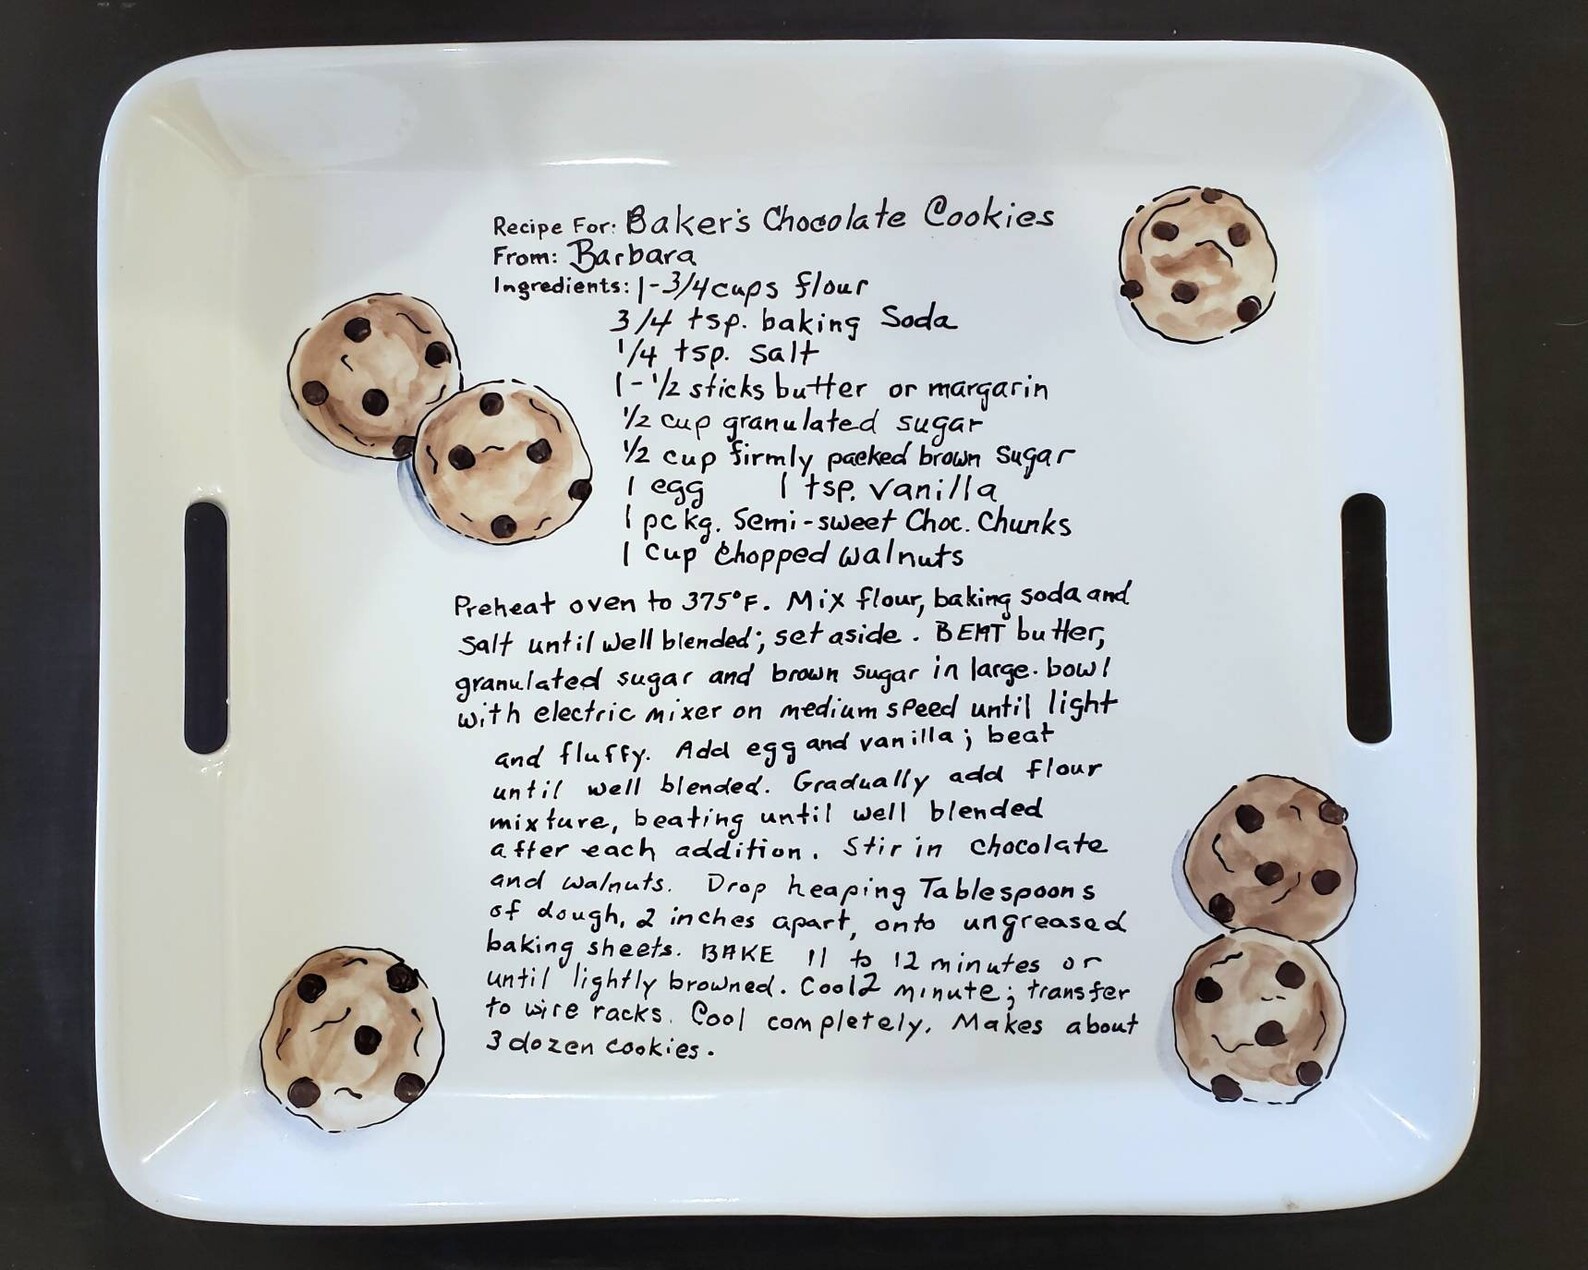 Recipe For: Baker's Chocolate Cookies
From: Barbara
Ingredients: 1-3/4 cups flour
3/4 tsp. baking Soda
1/4 tsp. salt
1-1/2 sticks butter or margarin
1/2 cup granulated sugar
1/2 cup firmly packed brown sugar
1 egg 1 tsp. vanilla
1 pckg. Semi-sweet Choc. Chunks
1 cup chopped walnuts
Preheat oven to 375°F. Mix flour, baking soda and
salt until well blended; set aside. BEAT butter,
granulated sugar and brown sugar in large. bowl
with electric mixer on medium speed until light
and fluffy. Add egg and vanilla; beat
until well blended. Gradually add flour
mixture, beating until well blended
after each addition. Stir in chocolate
and walnuts. Drop heaping Tablespoons
of dough, 2 inches apart, onto ungreased
baking sheets. BAKE 11 to 12 minutes or
until lightly browned. Cool 2 minute; transfer
to wire racks. Cool completely. Makes about
3 dozen cookies.